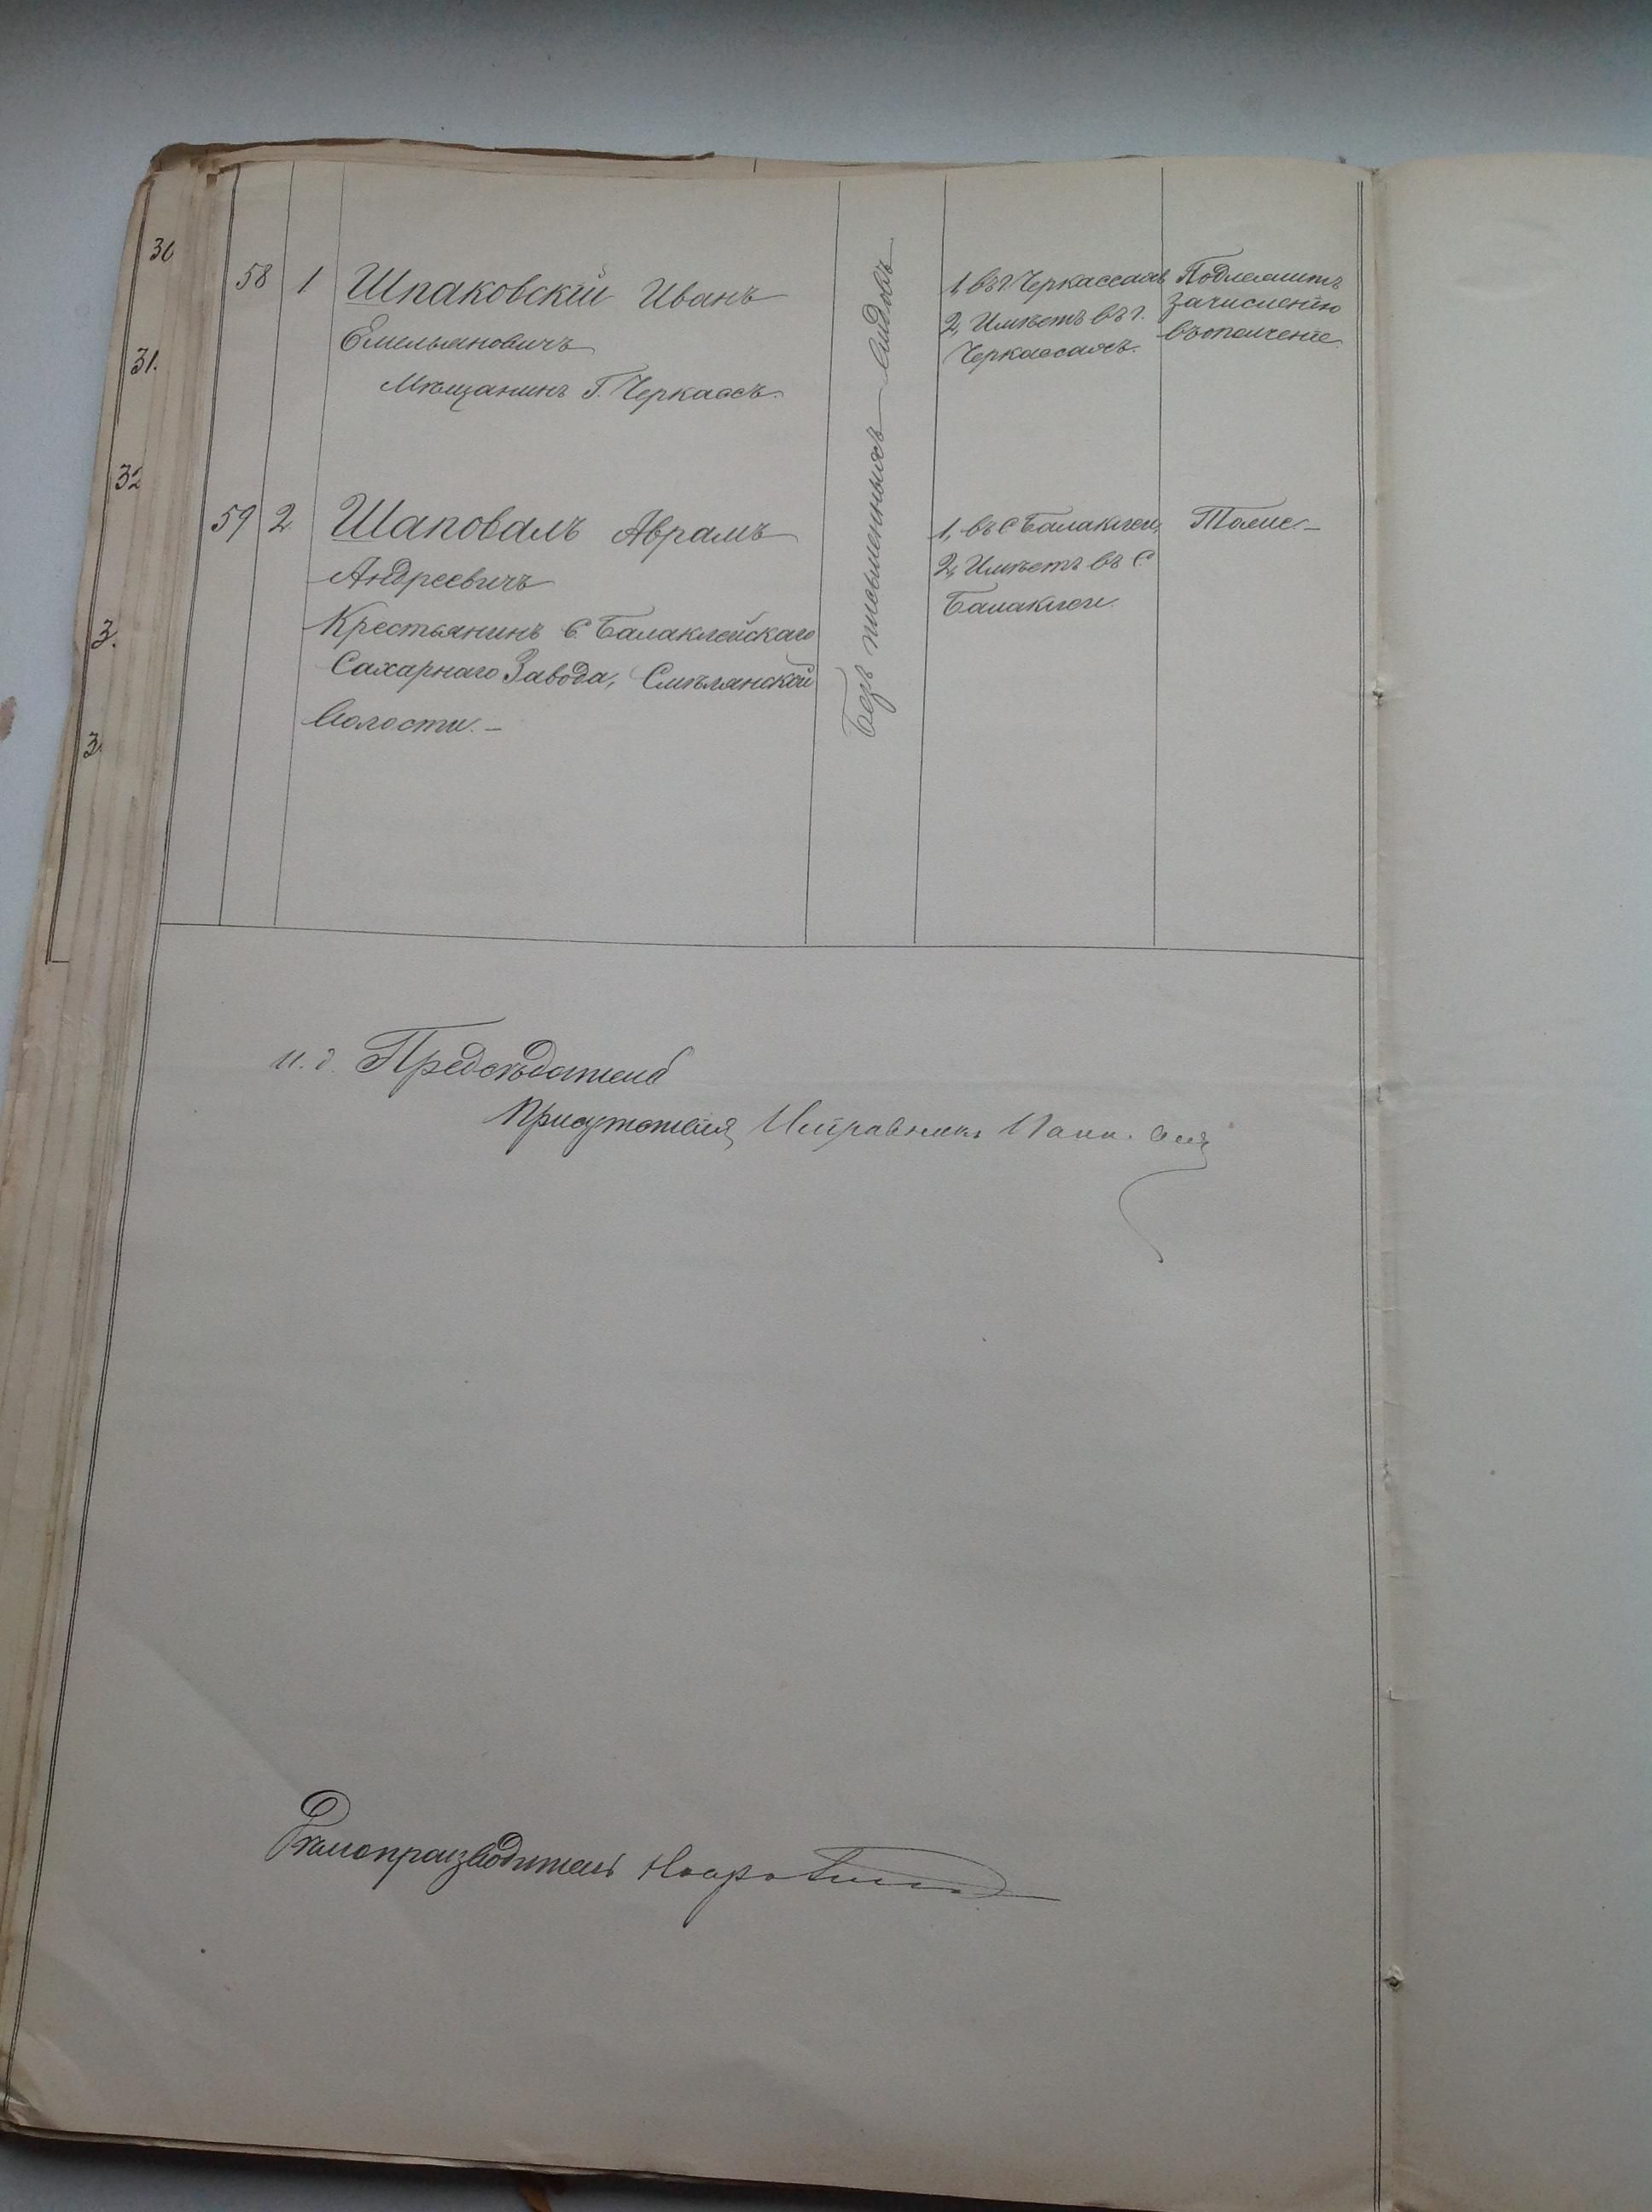 30
31.
32
3.
3
58 1 Шпаковскій Иванъ
Емельяновичъ
Мѣщанинъ Г. Черкассъ.
Безъ письменныхъ видовъ
1, въ г. Черкассахъ
2, Имѣетъ въ г.
Черкассахъ.
Подлежитъ
зачисленію
въ ополченіе.
59 2 Шаповалъ Аврамъ
Андреевичъ
Крестьянинъ С. Балаклейскаго
Сахарнаго Завода, Смѣлянской
Волости. –
1, въ С Балаклеи,
2, Имѣетъ въ С
Балаклеи.
Тоже. –
И. д. Предсѣдателя
Присутствія, Исправникъ
Дѣлопроизводитель